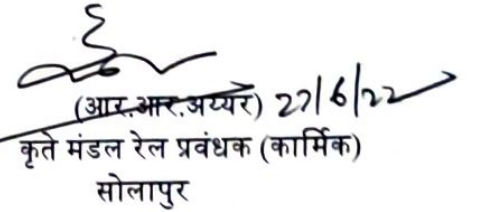 (आर.आर.अय्यर) 27/6/22
कृते मंडल रेल प्रवंधक (कार्मिक)
सोलापुर